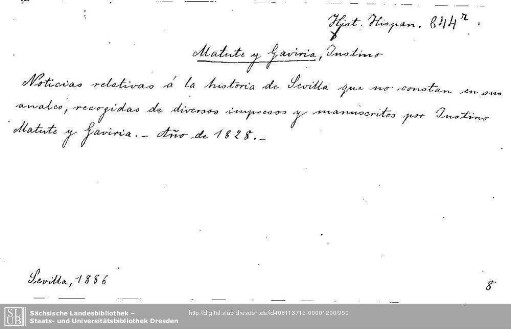 Hist. Hispan. 844ⁿ.
Matute y Gaviria, Justino
Noticias relativas á la historia de Sevilla que no constan en sus
anales, recogidas de diversos impresos y manuscritos por Justino
Matute y Gaviria. — Año de 1828. —
Sevilla, 1886
8
SLUB
Sächsische Landesbibliothek –
Staats- und Universitätsbibliothek Dresden